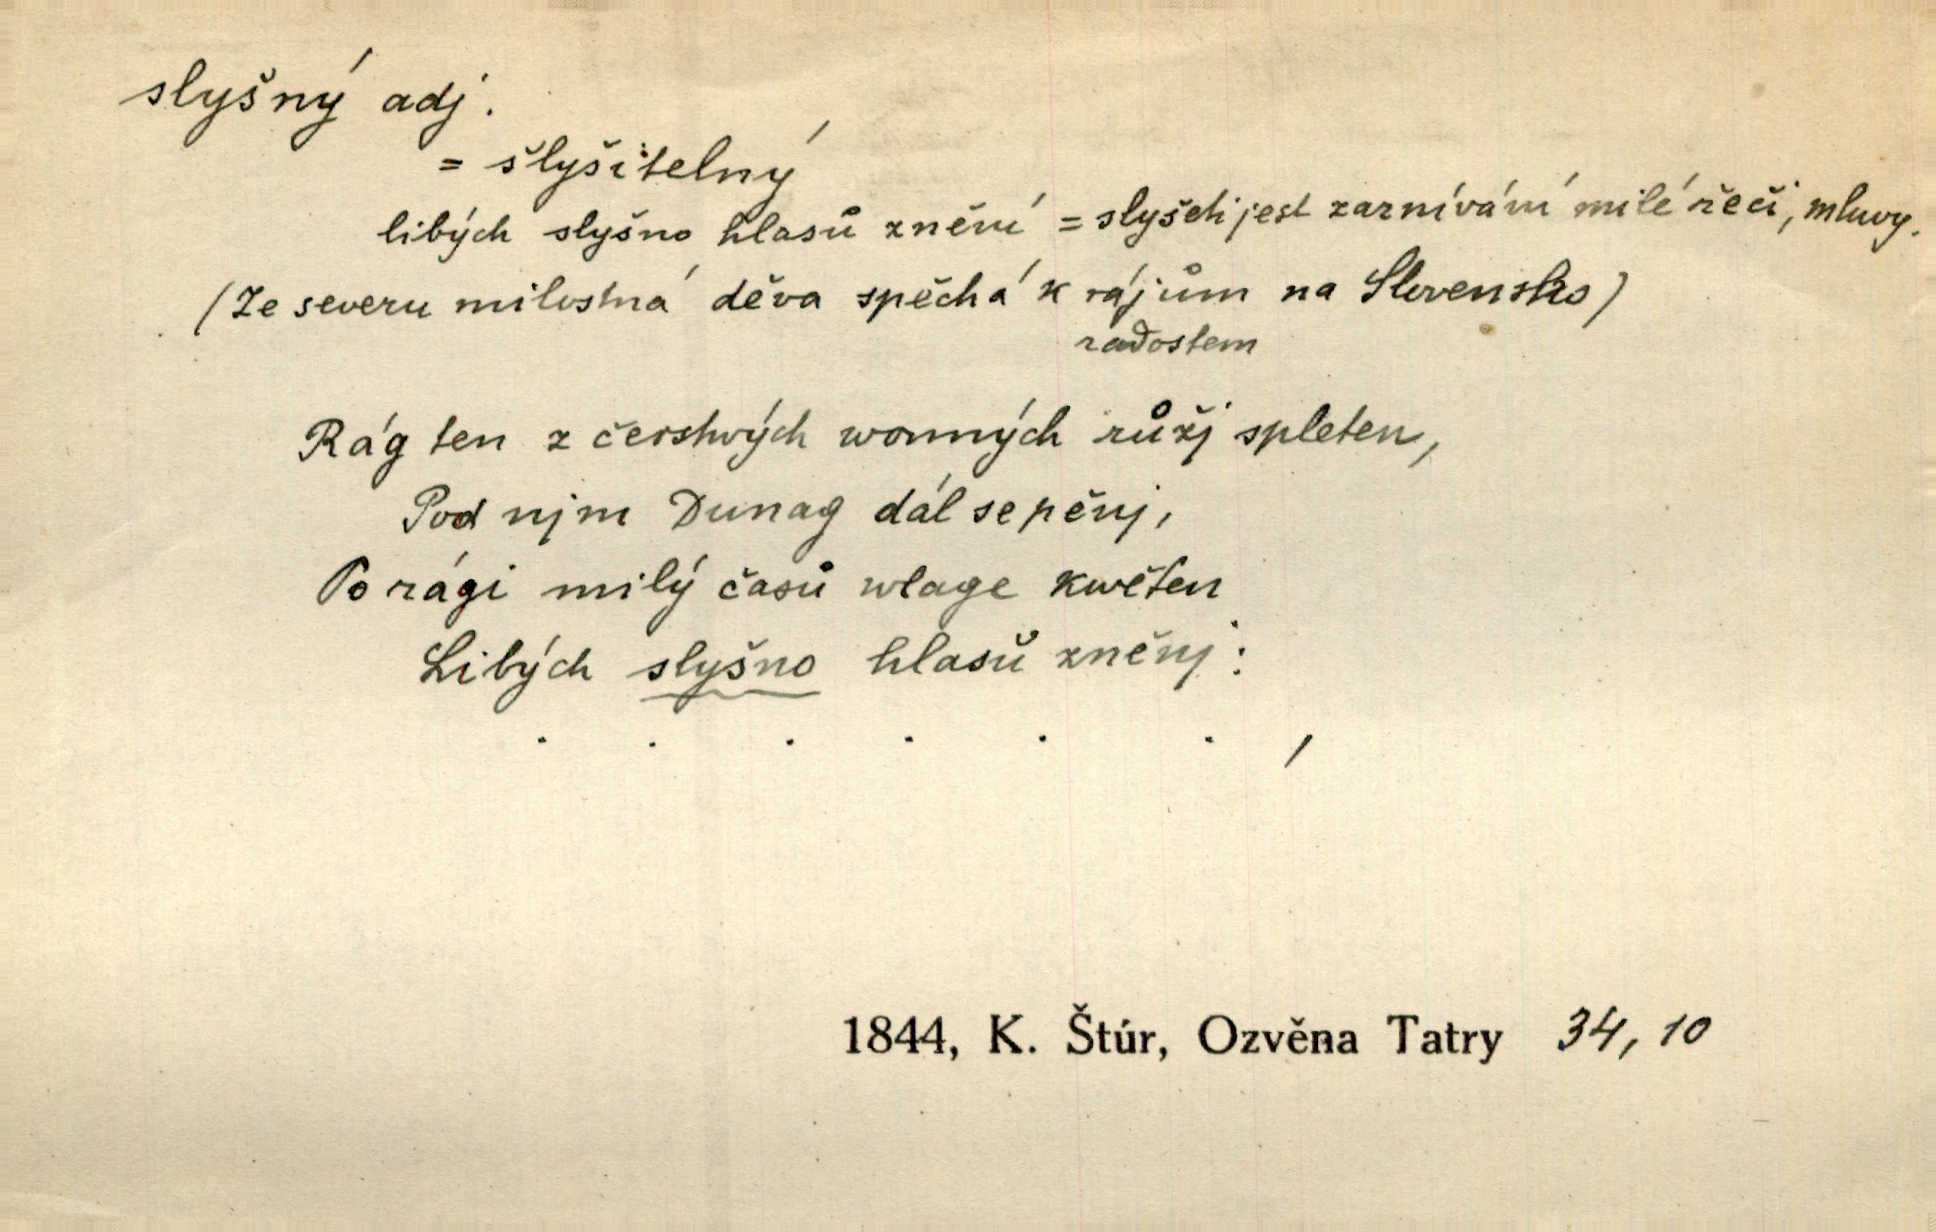 slyšný adj.
= slyšitelný
libých slyšno hlasů znění = slyšeti jest zaznívání milé řeči, mluvy.
(Ze severu milostná děva spěchá k rájům na Slovensko)
radostem
Rág ten z čerstwých wonných růžj spleten,
Pod njm Dunag dál se pěnj,
Po rági milý časů wlage kwěten
Libých slyšno hlasů zněnj:
. . . . . . ,
1844, K. Štúr, Ozvěna Tatry 34, 10